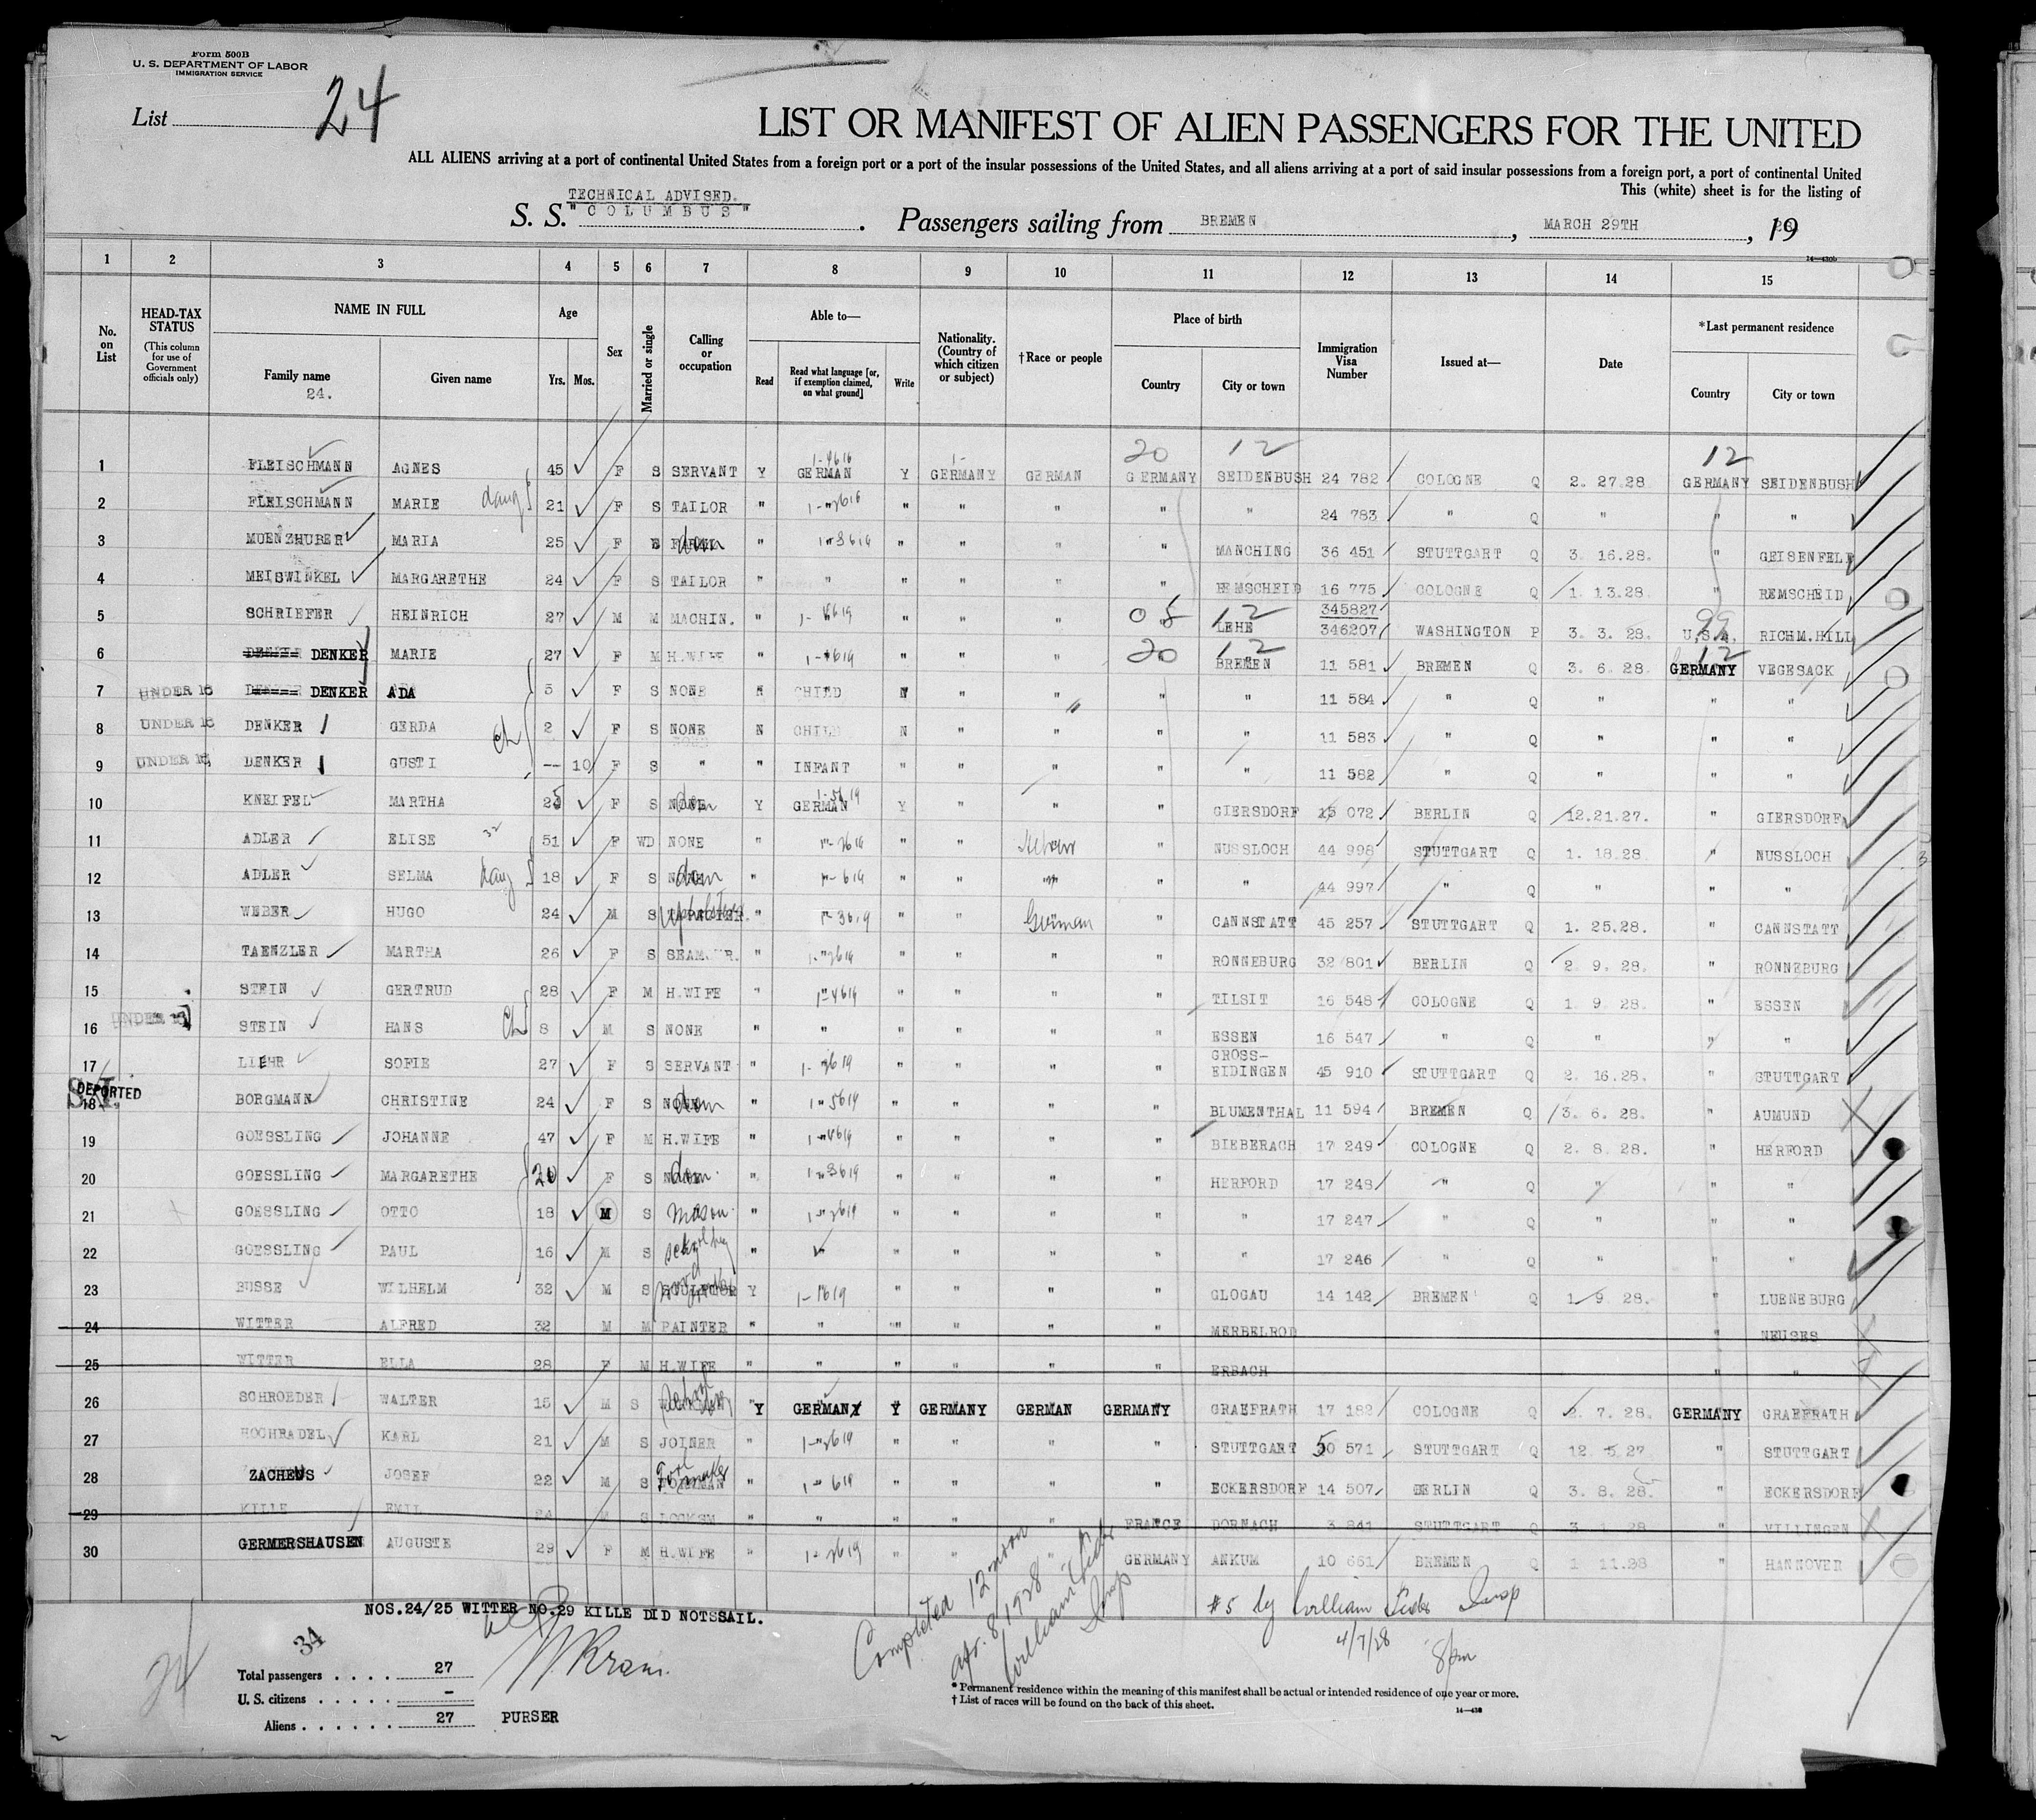 Form 500B
U. S. DEPARTMENT OF LABOR
IMMIGRATION SERVICE
List 24
LIST OR MANIFEST OF ALIEN PASSENGERS FOR THE UNITED
ALL ALIENS arriving at a port of continental United States from a foreign port or a port of the insular possessions of the United States, and all aliens arriving at a port of said insular possessions from a foreign port, a port of continental United
This (white) sheet is for the listing of
TECHNICAL ADVISED.
S. S. "COLUMBUS". Passengers sailing from BREMEN, MARCH 29TH, 19
14—430b
1 2 3 4 5 6 7 8 9 10 11 12 13 14 15
No. on List
HEAD-TAX STATUS (This column for use of Government officials only)
NAME IN FULL
Family name
24.
Given name
Age
Yrs. Mos.
Sex
Married or single
Calling or occupation
Able to—
Read
Read what language [or, if exemption claimed, on what ground]
Write
Nationality. (Country of which citizen or subject)
†Race or people
Place of birth
Country
City or town
Immigration Visa Number
Issued at—
Date
*Last permanent residence
Country
City or town
20 12 12
1 FLEISCHMANN AGNES 45 F S SERVANT Y GERMAN Y GERMANY GERMAN GERMANY SEIDENBUSH 24 782 COLOGNE Q 2. 27.28. GERMANY SEIDENBUSH
2 FLEISCHMANN MARIE daug 21 F S TAILOR " " " " " " 24 783 " Q " " "
3 MUENZHUBER MARIA 25 F S dom " " " " " MANCHING 36 451 STUTTGART Q 3. 16.28. " GEISENFELD
4 MEISWINKEL MARGARETHE 24 F S TAILOR " " " " " " REMSCHEID 16 775 COLOGNE Q 1. 13.28. " REMSCHEID
5 SCHRIEFER HEINRICH 27 M M MACHIN. " " " " 08 12 LEHE 345827 346207 WASHINGTON P 3. 3. 28. 99 U.S.A. RICHM.HILL
6 DENKER MARIE 27 F M H.WIFE " " " " 20 12 BREMEN 11 581 BREMEN Q 3. 6. 28. 12 GERMANY VEGESACK
7 UNDER 16 DENKER ADA 3 F S NONE N CHILD N " " " " 11 584 " Q " " "
8 UNDER 16 DENKER GERDA ch 2 F S NONE N CHILD N " " " " 11 583 " Q " " "
9 UNDER 16 DENKER GUSTI -- 10 F S " " INFANT " " " " " 11 582 " Q " " "
10 KNEIFEL MARTHA 25 F S dom Y GERMAN Y " " " GIERSDORF 15 072 BERLIN Q 12.21.27. " GIERSDORF
11 ADLER ELISE 51 F WD NONE " " " Hebrew " NUSSLOCH 44 998 STUTTGART Q 1. 18.28. " NUSSLOCH
12 ADLER SELMA daug 18 F S dom " " " " " " 44 997 " Q " " "
13 WEBER HUGO 24 M S Upholsterer " " " German " CANNSTATT 45 257 STUTTGART Q 1. 25.28. " CANNSTATT
14 TAENZLER MARTHA 26 F S SEAMSTR. " " " " " RONNEBURG 32 801 BERLIN Q 2. 9. 28. " RONNEBURG
15 STEIN GERTRUD 28 F M H.WIFE " " " " " TILSIT 16 548 COLOGNE Q 1. 9. 28. " ESSEN
16 UNDER 16 STEIN HANS ch 8 M S NONE " " " " " " ESSEN 16 547 " Q " " "
17 LIEHR SOFIE 27 F S SERVANT " " " " " GROSS-EIDINGEN 45 910 STUTTGART Q 2. 16.28. " STUTTGART
DEPORTED
18 BORGMANN CHRISTINE 24 F S dom " " " " " BLUMENTHAL 11 594 BREMEN Q 3. 6. 28. " AUMUND
19 GOESSLING JOHANNE 47 F M H.WIFE " " " " " BIEBERACH 17 249 COLOGNE Q 2. 8. 28. " HERFORD
20 GOESSLING MARGARETHE 20 F S dom. " " " " " HERFORD 17 248 " Q " " "
21 GOESSLING OTTO 18 M S mason " " " " " " 17 247 " Q " " "
22 GOESSLING PAUL 16 M S school boy " " " " " 17 246 " Q " " "
23 BUSSE WILHELM 32 M S Y " " " " GLOGAU 14 142 BREMEN Q 1. 9. 28. " LUENEBURG
24 WITTER ALFRED 32 M M PAINTER " " " " " " MERBELROD " NEUSES
25 WITTER ELLA 28 F M H.WIFE " " " " " " ERBACH " "
26 SCHROEDER WALTER 15 M S school boy Y GERMAN Y GERMANY GERMAN GERMANY GRAEFRATH 17 182 COLOGNE Q 2. 7. 28. GERMANY GRAEFRATH
27 HOCHRADEL KARL 21 M S JOINER " " " " " STUTTGART 50 571 STUTTGART Q 12. 5.27 " STUTTGART
28 ZACHEUS JOSEF 22 M S " " " " " ECKERSDORF 14 507 BERLIN Q 3. 8. 28. " ECKERSDORF
29 KILLE EMIL 24 S LOCKSM " " " " " FRANCE DORNACH 3 841 STUTTGART Q 3 28 " VILLINGEN
30 GERMERSHAUSEN AUGUSTE 29 F M H.WIFE " " " " GERMANY ANKUM 10 661 BREMEN Q 1 11.28 " HANNOVER
NOS.24/25 WITTER NO.29 KILLE DID NOTSSAIL.
Completed 12 noon
Apr. 8, 1928
William Insp
#5 by William Insp
4/7/28 8 pm
34
24
Total passengers 27
U. S. citizens –
Aliens 27
PURSER
* Permanent residence within the meaning of this manifest shall be actual or intended residence of one year or more.
† List of races will be found on the back of this sheet.
14—430